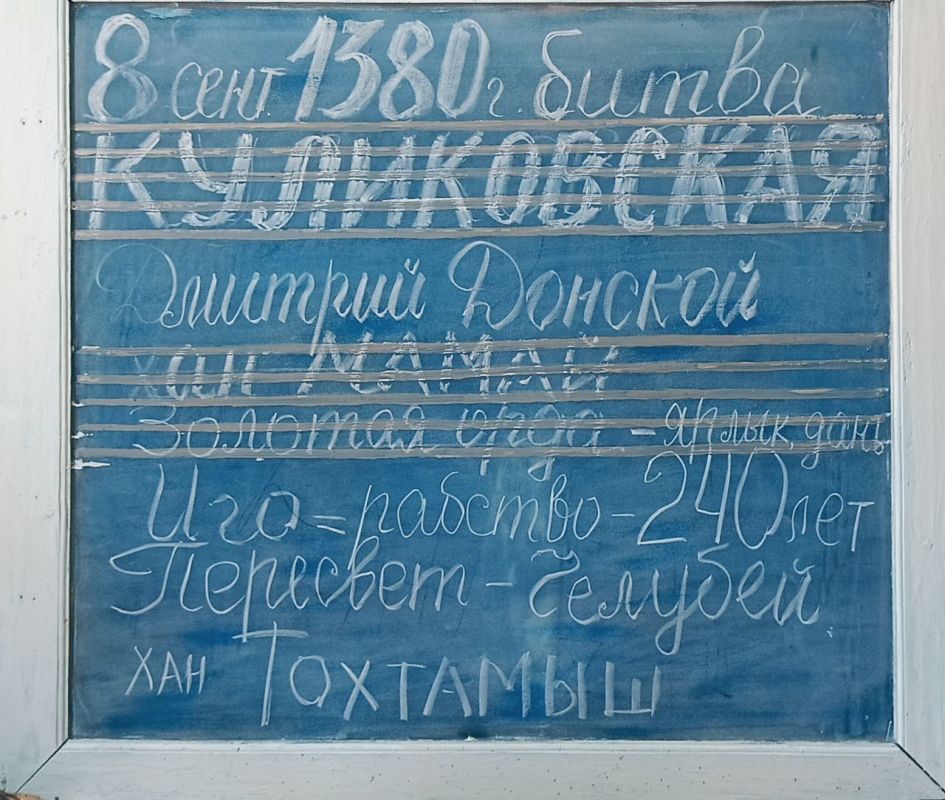 8 сент. 1380г. битва
КУЛИКОВСКАЯ
Дмитрий Донской
хан МАМАЙ
Золотая орда - ярлык, дань
Иго = рабство - 240 лет
Пересвет - Челубей
хан Тохтамыш